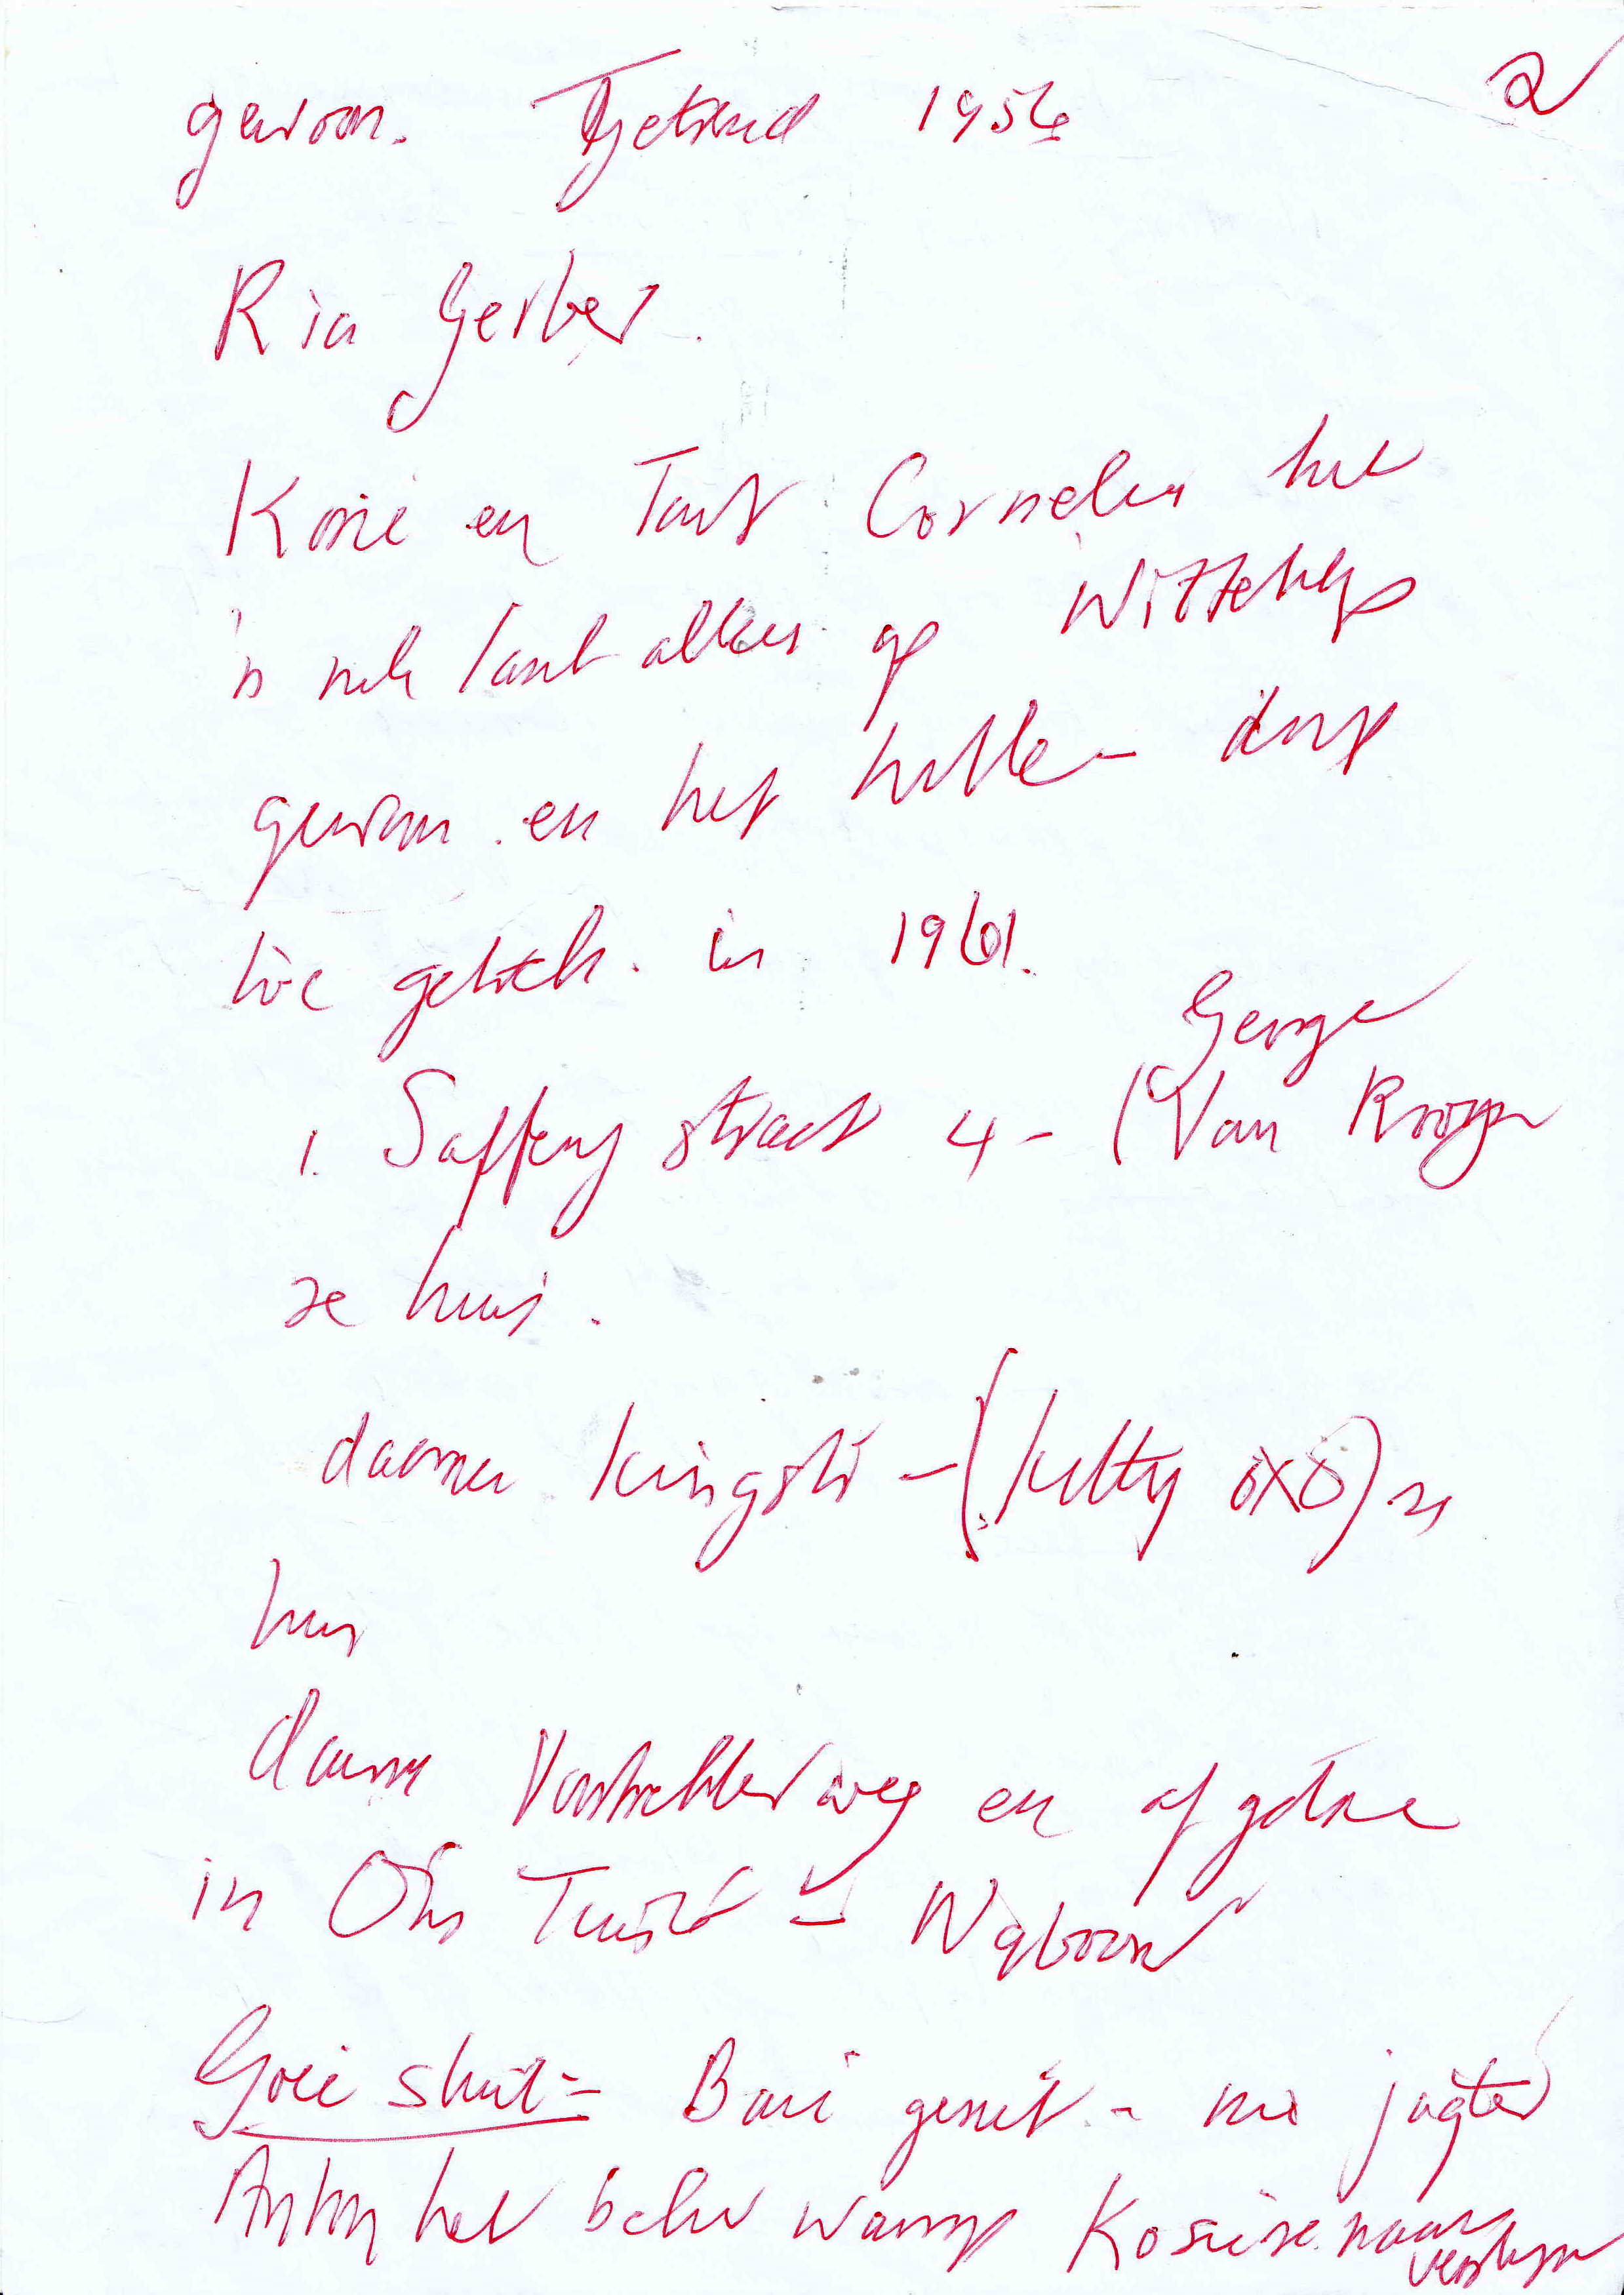 2
gewoon. Getroud 1956
Ria Gerber.
Kosie en Tant Cornelia het
'n ruk lank alleen op Wittekop
gewoon en het hulle dorp
toe getrek. in 1961.
George
1. Saffery straat 4 - (Van Rooyen
se huis.
daarna kingstr - (kitty 6x6) se
huis
daarna Voortrekkerweg en afgetree
in Ons Tuiste
Goeie skut = Baie geniet - jagter
Anton het Kosie se naam